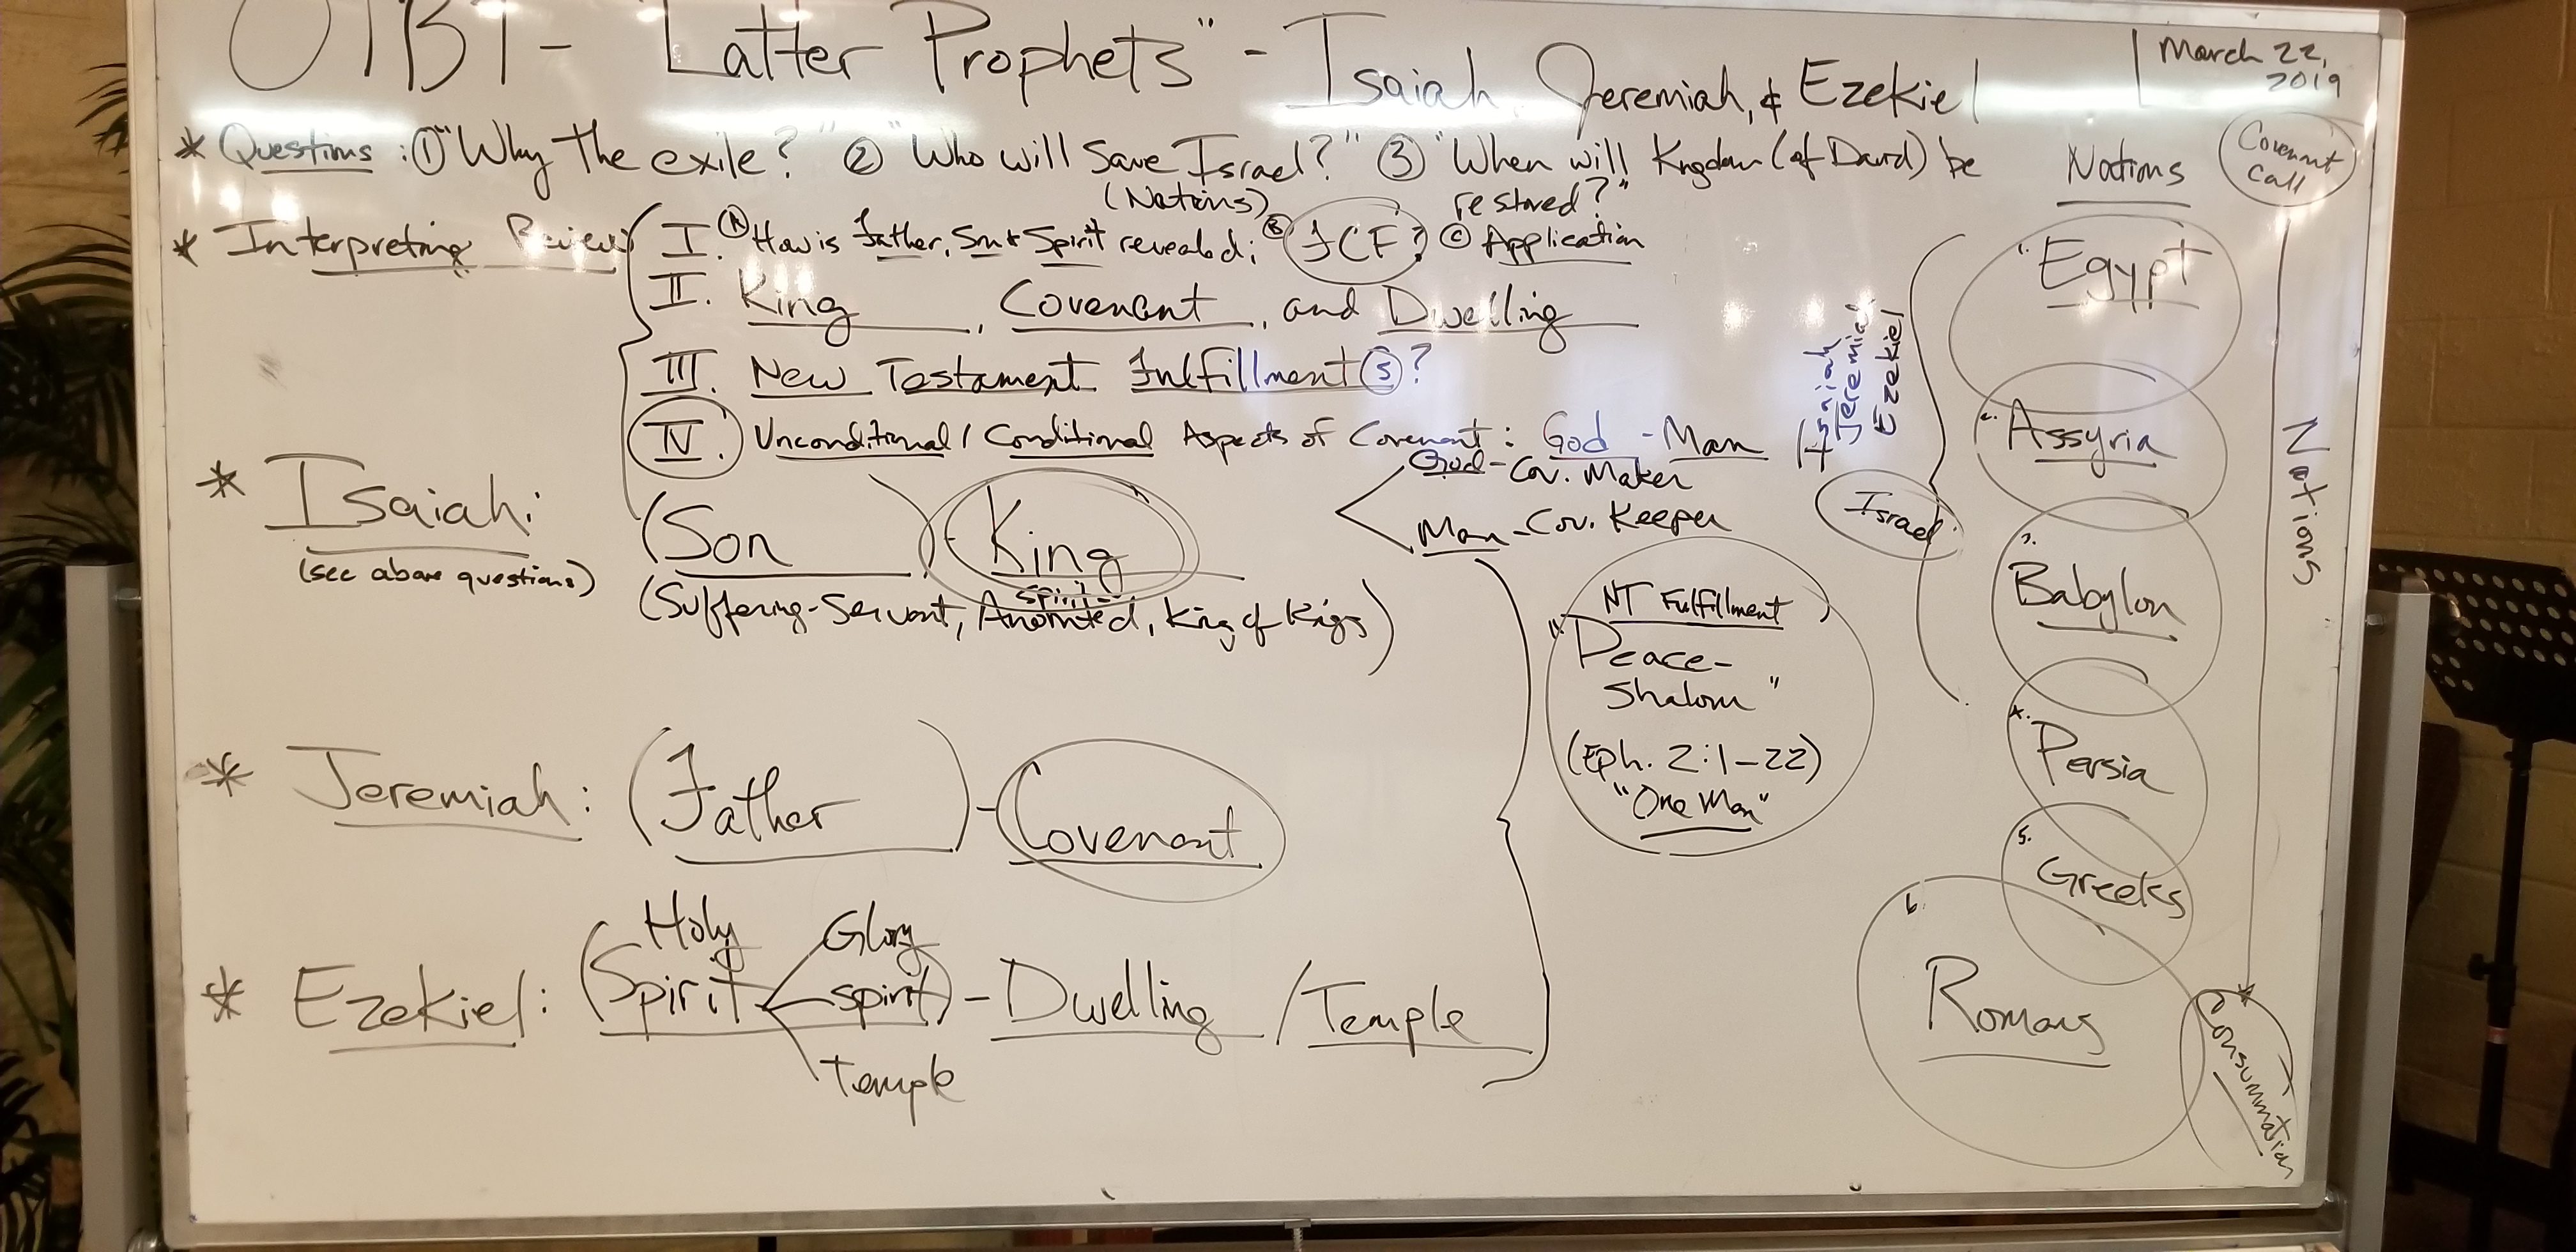 OTBT - "Latter Prophets" - Isaiah, Jeremiah, & Ezekiel
March 22, 2019
* Questions: ① "Why the exile?" ② "Who will save Israel?" ③ "When will Kngdom (of David) be
(Nations) restored?"
* Interpreting Review
I. Ⓐ How is Father, Son & Spirit revealed; Ⓑ FCF? Ⓒ Application
II. King, Covenant, and Dwelling
III. New Testament Fulfillment(s)?
IV. Unconditional / Conditional Aspects of Covenant: God - Man
God - Cov. Maker
Man - Cov. Keeper
* Isaiah:
(see above questions)
(Son) - King
Spirit-
(Suffering-Servant, Anointed, King of Kings)
* Jeremiah: (Father) - Covenant
* Ezekiel: (Holy Spirit
Glory
spirit) - Dwelling / Temple
Temple
NT Fulfillment
"Peace-
Shalom"
(Eph. 2:1-22)
"One Man"
Isaiah
Jeremiah
Ezekiel
Israel
Nations
Covenant Call
1. Egypt
2. Assyria
3. Babylon
4. Persia
5. Greeks
6. Romans
Nations
* Consummation